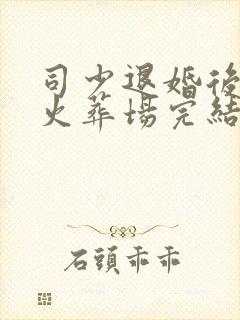 司少退婚後
火葬場完結
石頭乖乖